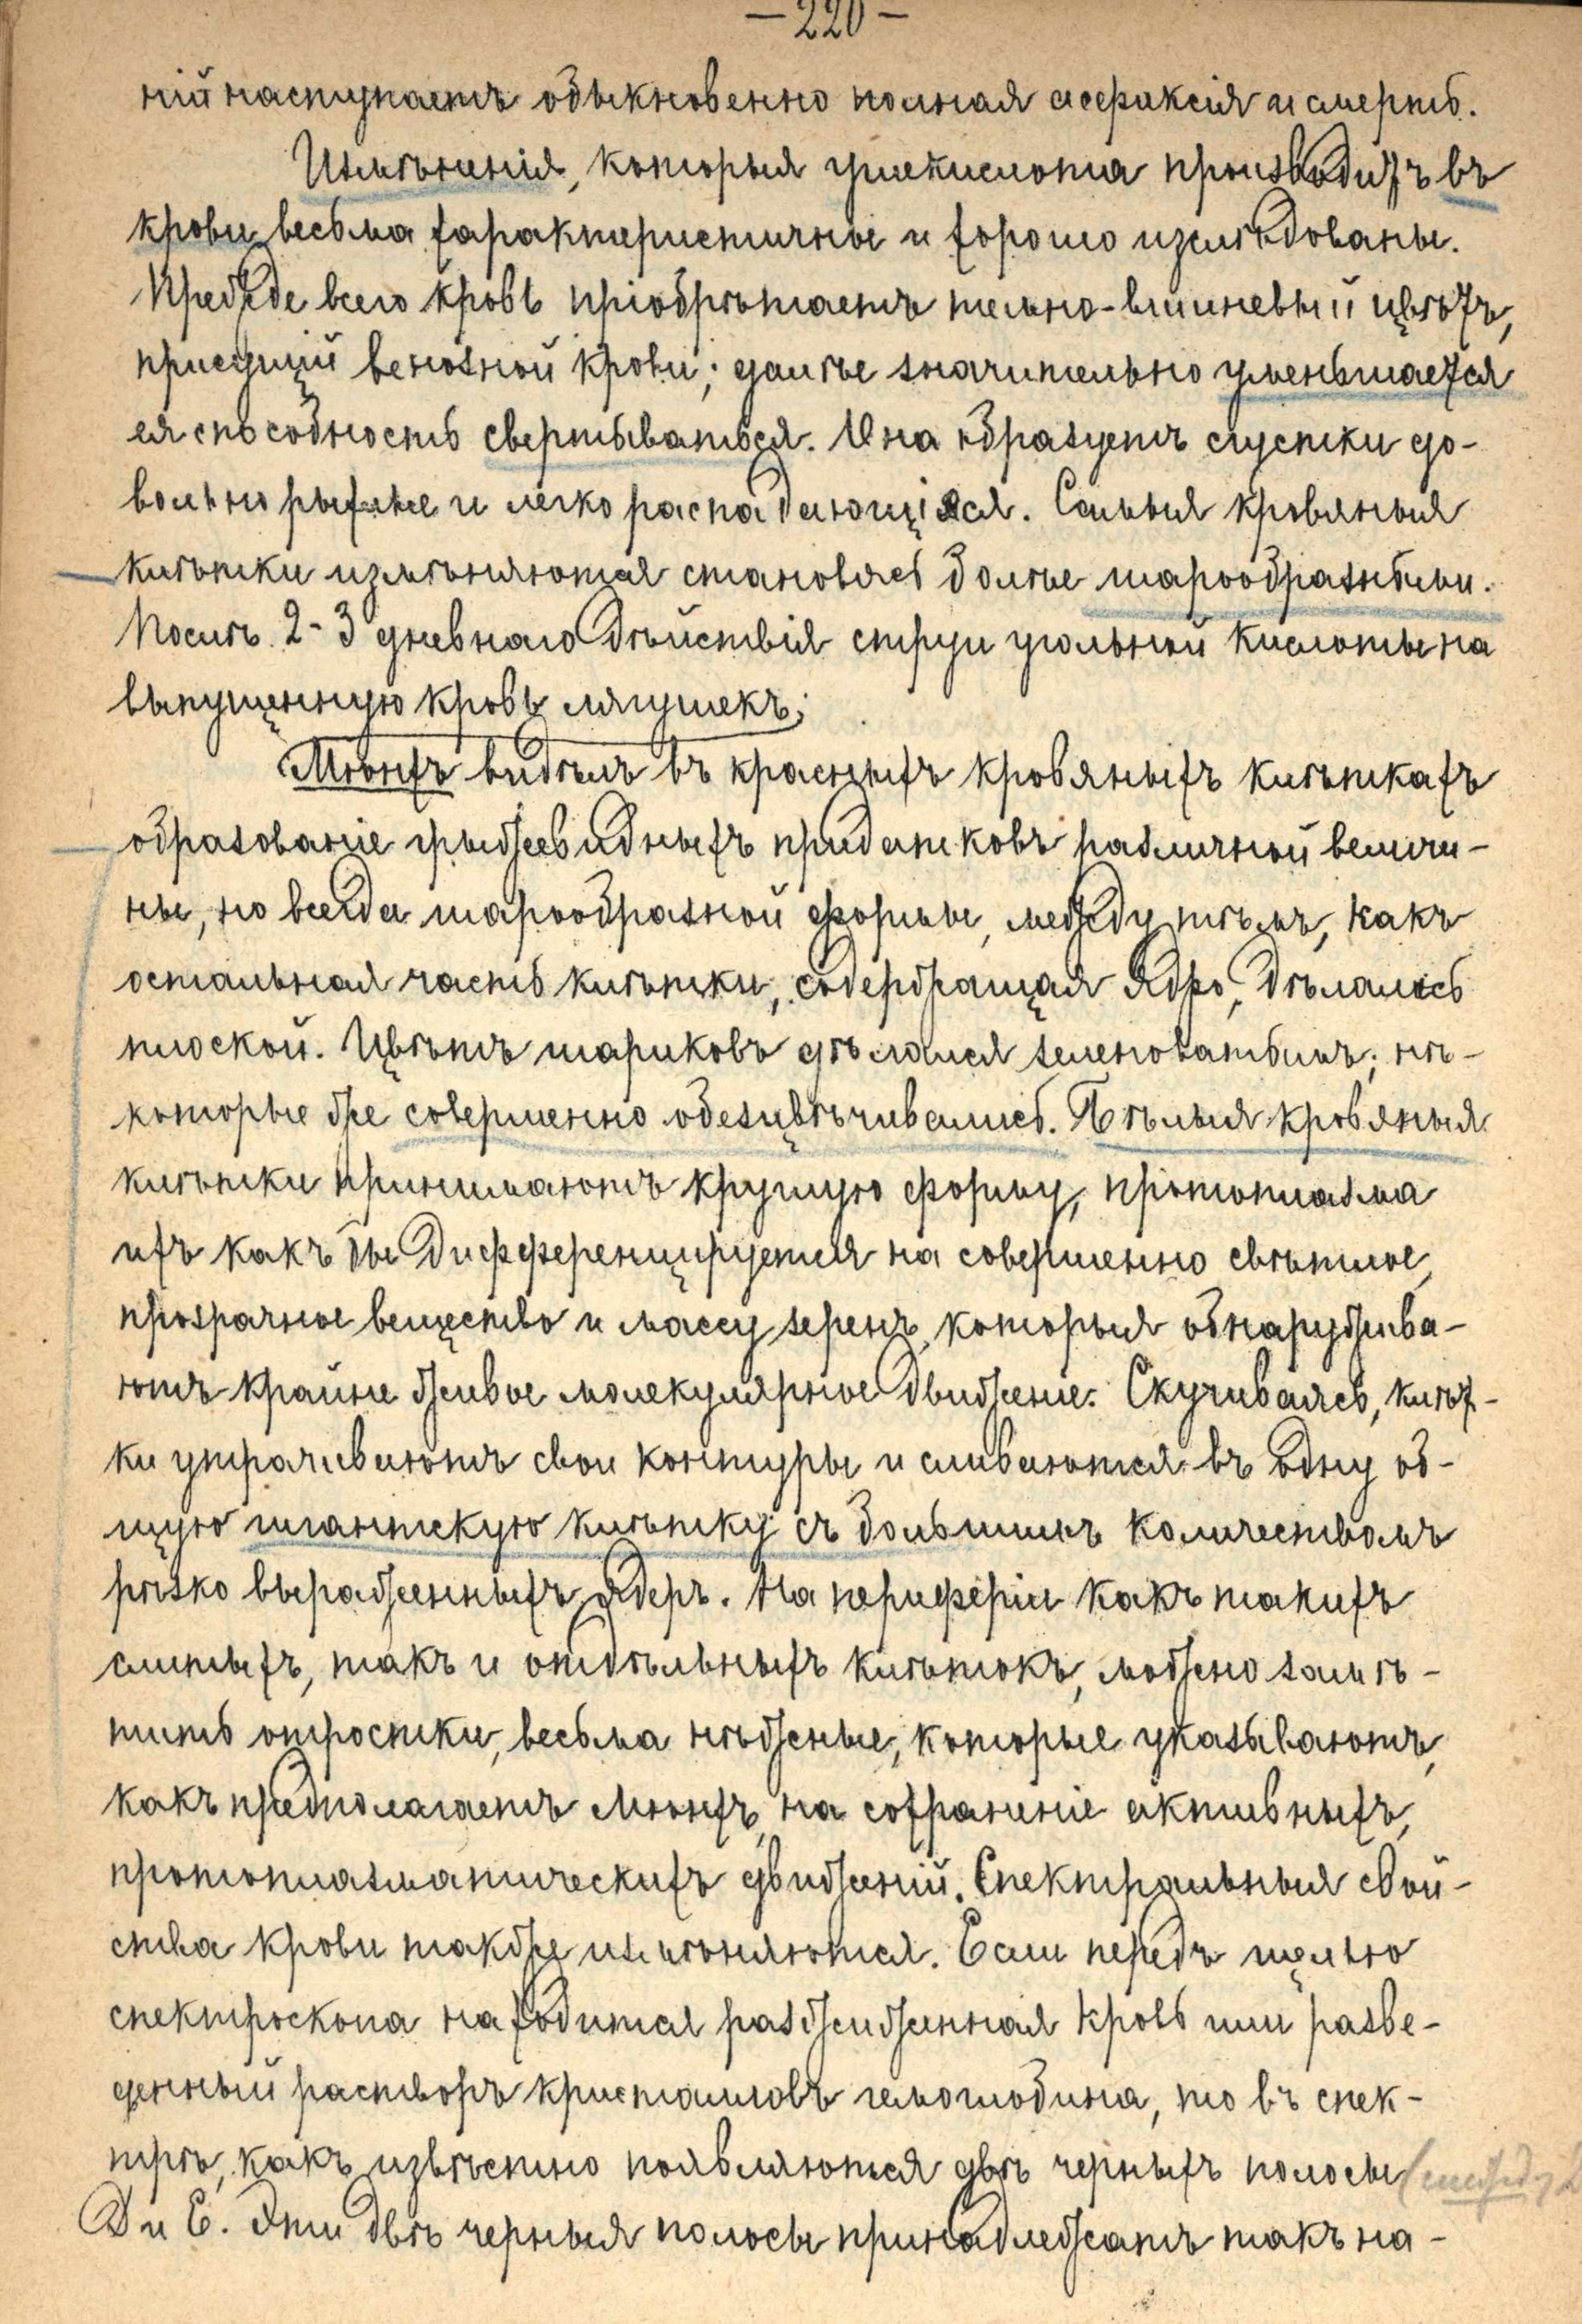 —220—
ній наступаетъ обыкновенно полная асфиксія и смерть.
Измѣненія, которыя углекислота производитъ въ
крови весьма характеристичные и хорошо изслѣдованы.
Прежде всего кровь пріобрѣтаетъ темно-вишневый цвѣтъ,
присущій венозной крови; далѣе значительно уменьшается
ея способность свертываться. Она образуетъ сгустки до-
вольно рыхлые и легко распадающіяся. Самыя кровяныя
клѣтки измѣняются становясь болѣе шарообразными.
Послѣ 2-3 дневнаго дѣйствія струи угольной кислоты на
выпущенную кровь лягушекъ;
Мюнхъ видѣлъ въ красныхъ кровяныхъ клѣткахъ
образованіе грыжевидныхъ придатковъ различной величи-
ны, но всегда шарообразной формы, между тѣмъ, какъ
остальная часть клѣтки, содержащая ядро, дѣлалась
плоской. Цвѣтъ шариковъ дѣлался зеленоватымъ; нѣ-
которые же совершенно обезцвѣчивались. Бѣлыя кровяныя
клѣтки принимаютъ круглую форму, протоплазма
ихъ какъ бы дифференцируется на совершенно свѣтлое,
прозрачное вещество и массу зеренъ, которыя обнаружива-
ютъ крайне живое молекулярное движеніе. Скучиваясь, клѣт-
ки утрачиваютъ свои контуры и сливаются въ одну об-
щую гигантскую клѣтку съ большимъ количествомъ
рѣзко выраженныхъ ядеръ. На периферіи какъ такихъ
слитыхъ, такъ и отдѣльныхъ клѣтокъ, можно замѣ-
тить отростки, весьма нѣжные, которые указываютъ,
какъ предполагаетъ Мюнхъ, на сохраненіе активныхъ,
протоплазматическихъ движеній. Спектральныя свой-
ства крови также измѣняются. Если передъ щелью
спектроскопа находится разжиженная кровь или разве-
денный растворъ кристалловъ гемоглобина, то въ спек-
трѣ, какъ извѣстно появляются двѣ черныхъ полосы (между
D и E. Эти двѣ черныя полосы принадлежатъ такъ на-